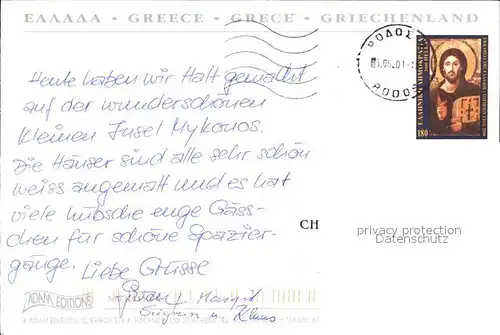 ΕΛΛΑΔΑ - GREECE - GRECE - GRIECHENLAND
ΡΟΔΟΣ
RODOS
180
Heute haben wir Halt gemacht
auf der wunderschönen
kleinen Insel Mykonos.
Die Häuser sind alle sehr schön
weiss angemalt und es hat
viele hübsche enge Gäss-
chen für schöne Spazier-
gänge. Liebe Grüsse
Margrit
u. Klaus
CH
privacy protection
Datenschutz
ADAM EDITIONS